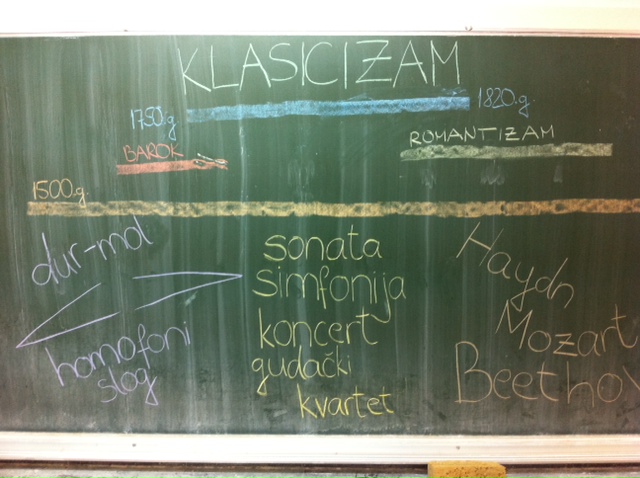 KLASICIZAM
1750.g
1820.g.
BAROK
ROMANTIZAM
1500.g.
dur-mol
homofoni
slog
sonata
simfonija
koncert
gudački
kvartet
Haydn
Mozart
Beethov